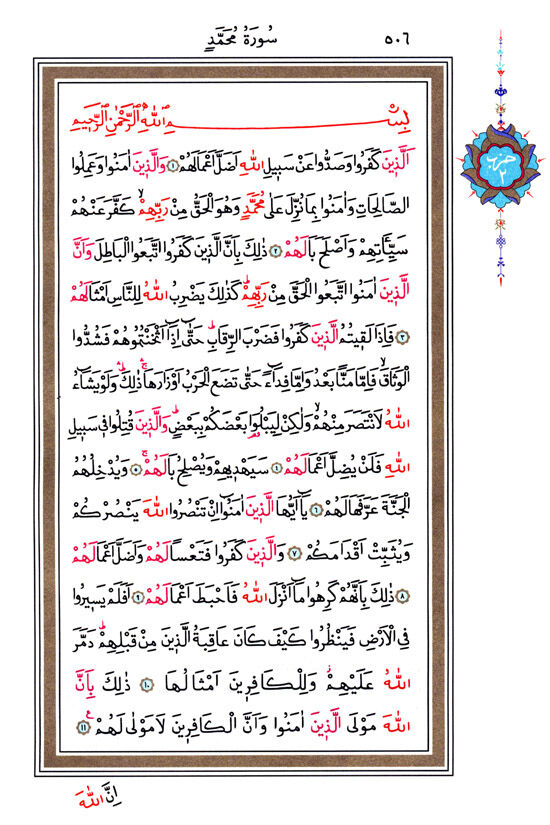 ٥٠٦
سُورَةُ مُحَمَّدٍ
حزب
٢
بِسْمِ اللهِ الرَّحْمٰنِ الرَّحِيمِ
اَلَّذِينَ كَفَرُوا وَصَدُّوا عَنْ سَبِيلِ اللهِ اَضَلَّ اَعْمَالَهُمْ ١ وَالَّذِينَ اٰمَنُوا وَعَمِلُوا
الصَّالِحَاتِ وَاٰمَنُوا بِمَا نُزِّلَ عَلٰى مُحَمَّدٍ وَهُوَ الْحَقُّ مِنْ رَبِّهِمْۙ كَفَّرَ عَنْهُمْ
سَيِّـَٔاتِهِمْ وَاَصْلَحَ بَالَهُمْ ٢ ذٰلِكَ بِاَنَّ الَّذِينَ كَفَرُوا اتَّبَعُوا الْبَاطِلَ وَاَنَّ
الَّذِينَ اٰمَنُوا اتَّبَعُوا الْحَقَّ مِنْ رَبِّهِمْۜ كَذٰلِكَ يَضْرِبُ اللهُ لِلنَّاسِ اَمْثَالَهُمْ
٣ فَاِذَا لَقِيتُمُ الَّذِينَ كَفَرُوا فَضَرْبَ الرِّقَابِۜ حَتّٰٓى اِذَٓا اَثْخَنْتُمُوهُمْ فَشُدُّوا
الْوَثَاقَۙ فَاِمَّا مَنًّا بَعْدُ وَاِمَّا فِدَٓاءً حَتّٰى تَضَعَ الْحَرْبُ اَوْزَارَهَاۚۛ ذٰلِكَۜۛ وَلَوْ يَشَٓاءُ
اللهُ لَانْتَصَرَ مِنْهُمْۙ وَلٰكِنْ لِيَبْلُوَ۬ا بَعْضَكُمْ بِبَعْضٍۜ وَالَّذِينَ قُتِلُوا فِي سَبِيلِ
اللهِ فَلَنْ يُضِلَّ اَعْمَالَهُمْ ٤ سَيَهْدِيهِمْ وَيُصْلِحُ بَالَهُمْۚ ٥ وَيُدْخِلُهُمُ
الْجَنَّةَ عَرَّفَهَا لَهُمْ ٦ يَٓا اَيُّهَا الَّذِينَ اٰمَنُٓوا اِنْ تَنْصُرُوا اللهَ يَنْصُرْكُمْ
وَيُثَبِّتْ اَقْدَامَكُمْ ٧ وَالَّذِينَ كَفَرُوا فَتَعْساً لَهُمْ وَاَضَلَّ اَعْمَالَهُمْ
٨ ذٰلِكَ بِاَنَّهُمْ كَرِهُوا مَٓا اَنْزَلَ اللهُ فَاَحْبَطَ اَعْمَالَهُمْ ٩ اَفَلَمْ يَسِيرُوا
فِي الْاَرْضِ فَيَنْظُرُوا كَيْفَ كَانَ عَاقِبَةُ الَّذِينَ مِنْ قَبْلِهِمْۜ دَمَّرَ
اللهُ عَلَيْهِمْۘ وَلِلْكَافِرِينَ اَمْثَالُهَا ١٠ ذٰلِكَ بِاَنَّ
اللهَ مَوْلَى الَّذِينَ اٰمَنُوا وَاَنَّ الْكَافِرِينَ لَا مَوْلٰى لَهُمْ۟ ١١
اِنَّ اللهَ